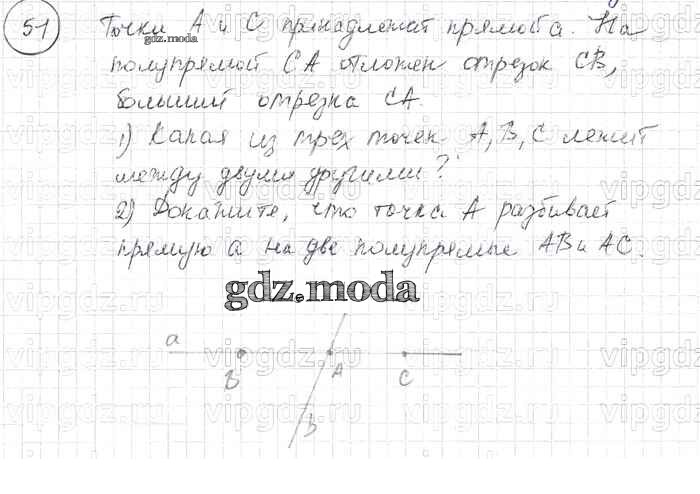 51 Точки А и С принадлежат прямой а. На
полупрямой СА отложен отрезок СВ,
больший отрезка СА.
1) Какая из трех точек А, В, С лежит
между двумя другими?
2) Докажите, что точка А разбивает
прямую а на две полупрямые АВ и АС.
gdz.moda
gdz.moda
а
В
А
С
b
vipgdz.ru